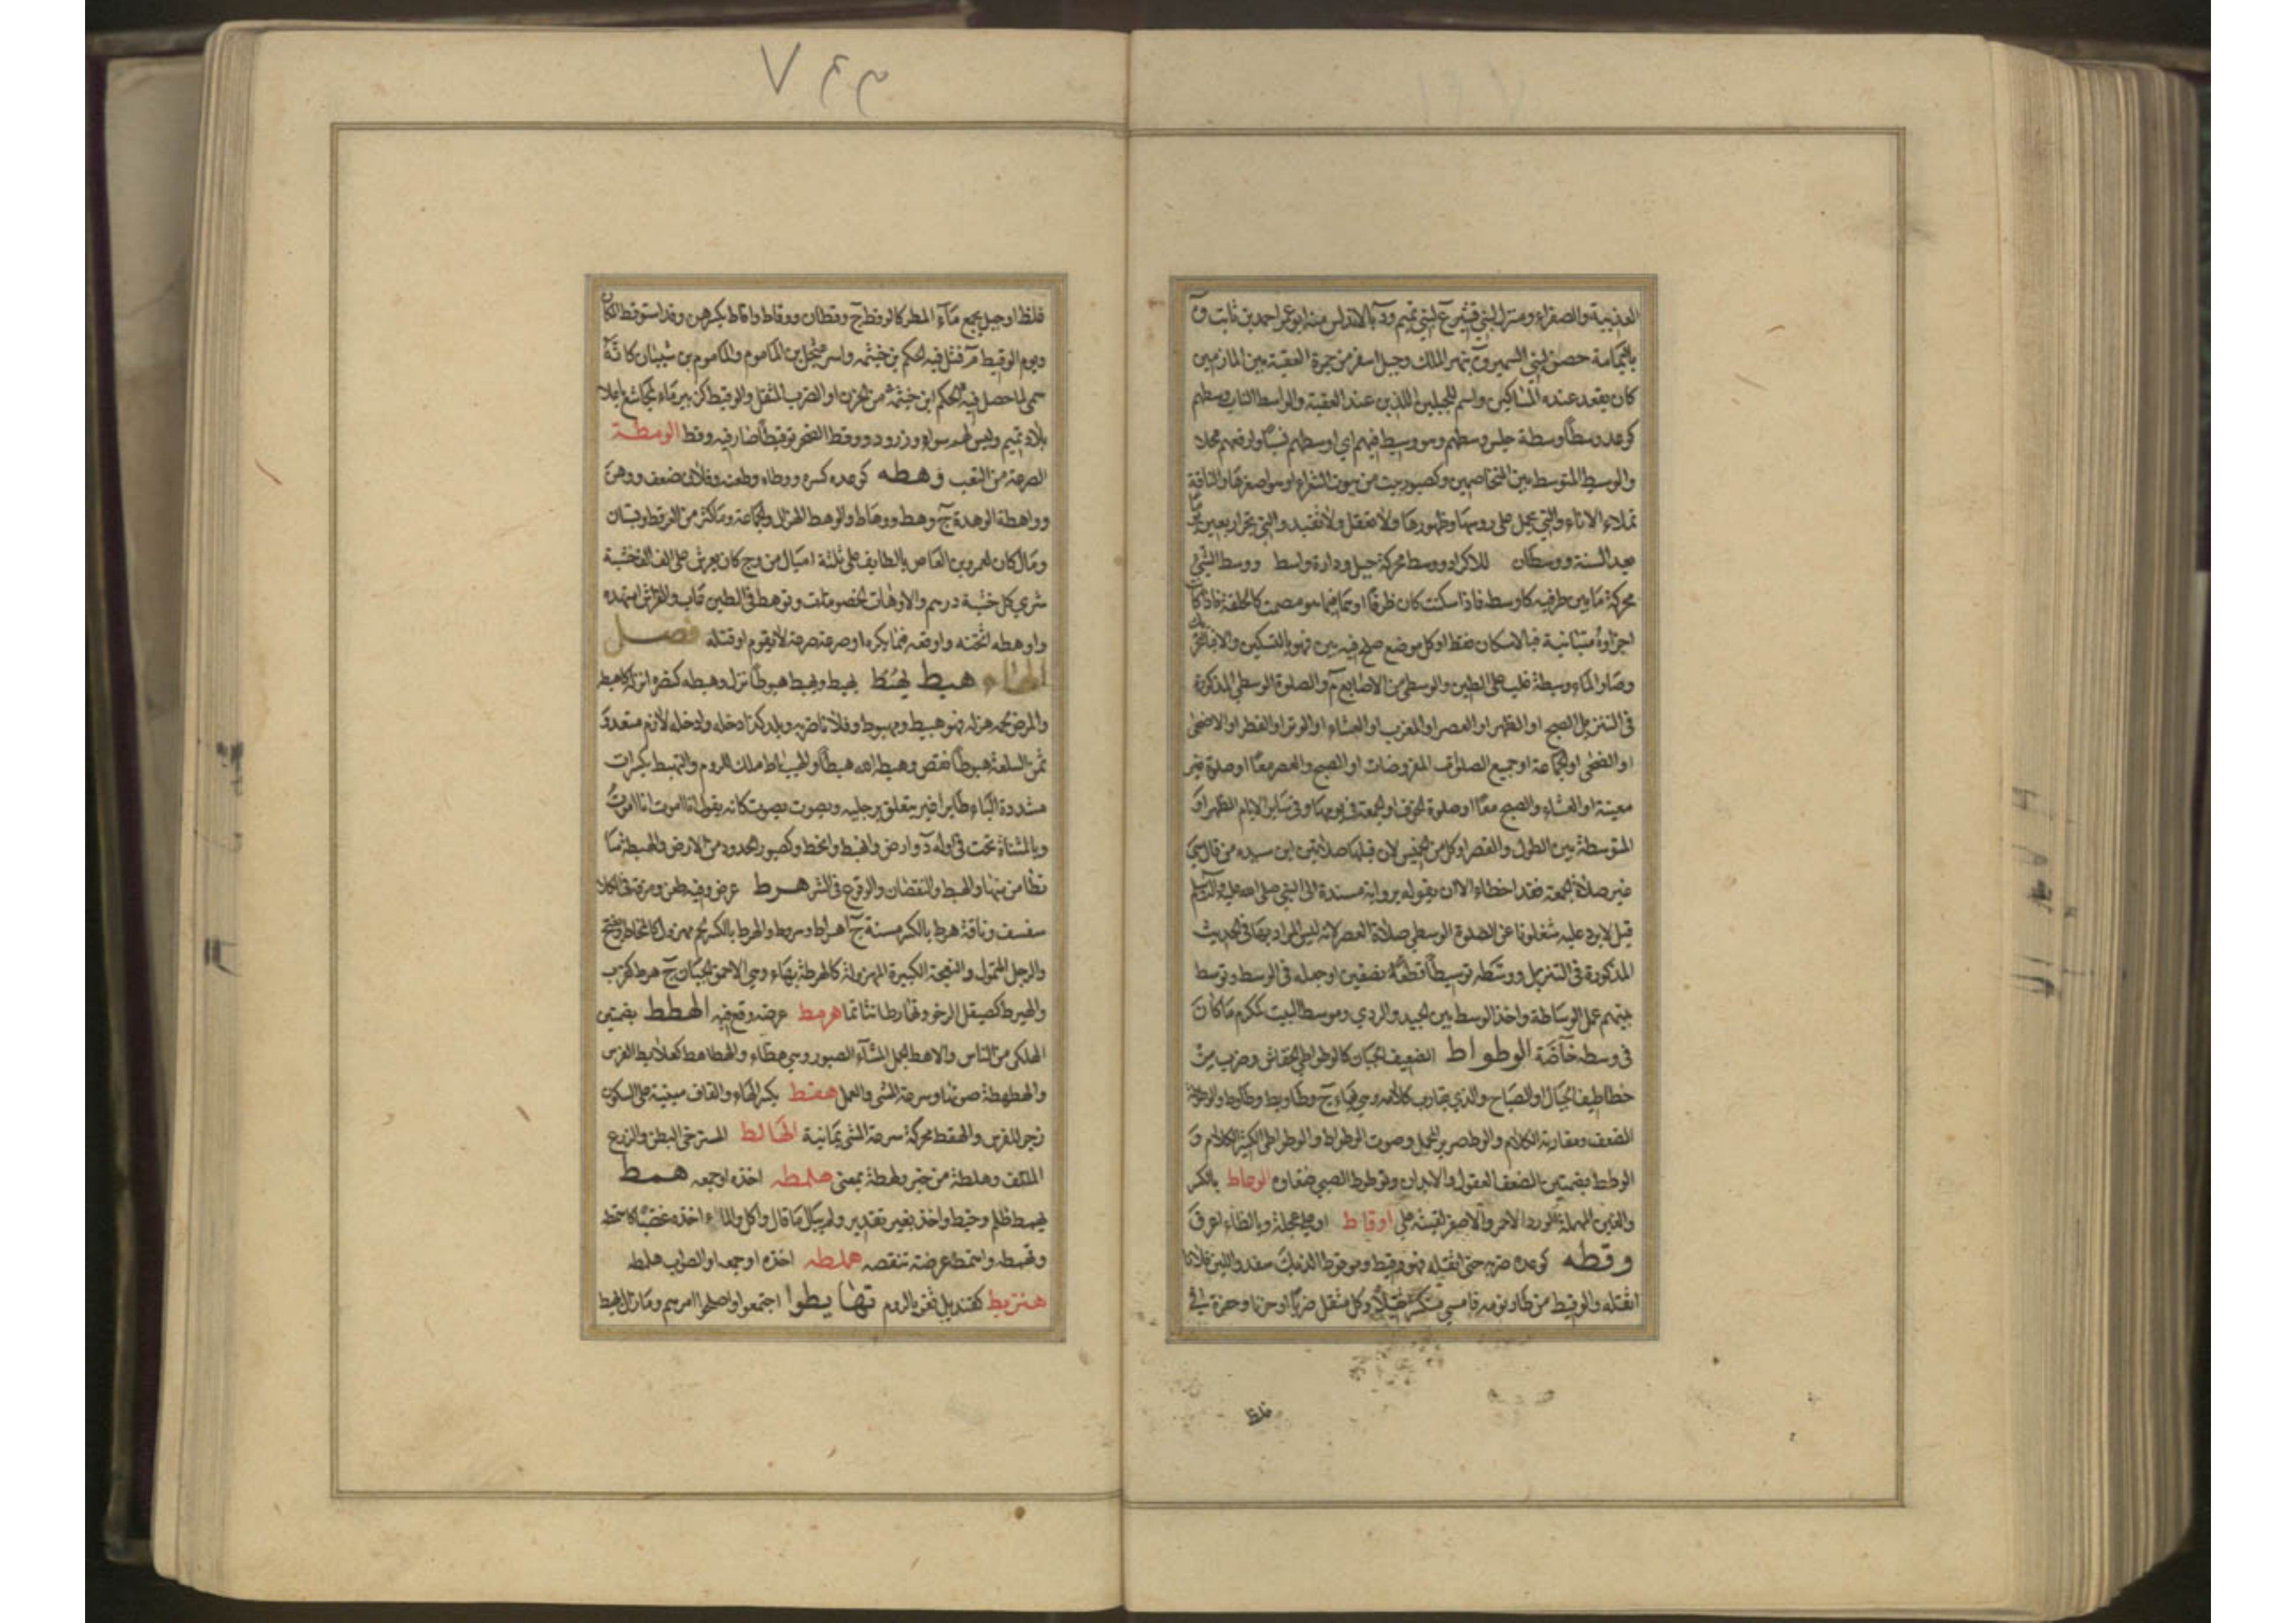 العذيبة والصفراء ومنزل لبني قشير ع لبني تميم ود بالاندلس منه ابو عمر احمد بن ثابت وة
باليمامة حصن لبني السمير وة بنهر الملك وجبل اسفر من جمرة العقبة بين المازمين
كان يقعد عنده المساكين واسم للجبلين اللذين عند العقبة والواسط الباب وسطهم
كوعد وسطا وسطة جلس وسطهم وهو وسيط فيهم اي اوسطهم نسبا وارفعهم محلا
والوسيط المتوسط بين المتخاصمين وكصبور بيت من بيوت الشعراء او هو اصغرها والناقة
تملاء الاناء والتي تحمل على روسها وظهورها ولا تعقل ولا تقيد والتي تجر اربعين يوما
بعد السنة ووسطان للاكراد ووسط محركة جبل ودارة واسط ووسط الشيء
محركة ما بين طرفيه كاوسطه فاذا سكنت كان ظرفا او هما فيما هو مصمت كالحلقة فاذا كان
اجزاؤه متباينة فبالاسكان فقط او كل موضع صلح فيه بين فهو بالتسكين والا فبالتحريك
وصار الماء وسيطة غلب على الطين والوسطى من الاصابع م والصلوة الوسطى المذكورة
في التنزيل الصبح او الظهر او العصر او المغرب او العشاء او الوتر او الفطر او الاضحى
او الضحى او الجماعة او جميع الصلوات المفروضات او الصبح والعصر معا او صلوة غير
معينة او العشاء والصبح معا او صلوة الخوف او الجمعة في يومها وفي سائر الايام الظهر او
المتوسطة بين الطول والقصر او كل من الخمس لان قبلها صلاتين ابن سيده من قال هي
غير صلاة الجمعة فقد اخطاء الا ان يقوله برواية مسندة الى النبي صلى الله عليه وآله وسلم
قيل لا يرد عليه شغلونا عن الصلوة الوسطى صلاة العصر لانه ليس المراد بها في الحديث
المذكورة في التنزيل ووسطه توسيطا قطعه نصفين او جعله في الوسط وتوسط
بينهم عمل الوساطة واخذ الوسط بين الجيد والردي وموسط البيت كمكرم ما كان
في وسطه خاصة الوطواط الضعيف الجبان كالوطواطي الخفاش وضرب من
خطاطيف الجبال والصياح والذي يقارب كلامه وهي بهاء ج وطاويط وطاوط والوطوطة
الضعف ومقاربة الكلام والوط صرير المحمل وصوت الوطواط والوطواطي الكثير الكلام و
الوطط بضمتين الضعفى العقول والابدان وتوطوط الصبي ضغاوه الوعاط بالكسر
والعين المهملة الورد الاحمر والاصفر لقيته على اوقاط اوعلى عجلة وبالظاء اعرف
وقطه كوعده ضربه حتى اثقله فهو وقيط وموقوط الديك سفد واللبن فلانا
اثقله والوقيط من طار نومه فامسى متكسرا ثقيلا وكل مثقل ضربا او حزنا وحفرة في
فلظا
غلظ او جبل يجمع ماء المطر كالوقط ج وقطان ووقاط واقاط بكسرهن وقد استوقط المكان
ويوم الوقيط م قتل فيه الحكم بن خيثمه واسر عثجل بن المأموم والمأموم بن شيبان كانه
سمي لما حصل فيه للحكم ابن خيثمة من الحزن او الضرب المثقل والوقيط كزبير ماء لمجاشع باعلا
بلاد تميم وليس لهم سواه وزرود ووقط الصخر توقيطا صار فيه وقط الومطة
الصرعة من التعب وهطه كوعده كسره ووطاه وطعنه وفلان ضعف ووهن
وواهطة الوهدة ج وهط ووهاط والوهط الهزال والجماعة وما كثر من العرفط وبستان
ومال كان لعمرو بن العاص بالطايف على ثلثة اميال من وج كان يعرش على الف الف خشبة
شري كل خشبة درهم والاوهاط الخصومات وتوهط في الطين غاب والفراش امتهده
واوهطه اثخنه واوقعه فيما يكره او صرعه صرعة لا يقوم او قتله فصل
الهاء هبط يهبط يهبط ويهبط هبوطا نزل وهبطه كنصره انزله كاهبطه
والمرض لحمه هزله فهو هبيط ومهبوط وفلانا ضربه وبلد كذا دخله وادخله لازم متعد و
ثمن السلعة هبوطا نقص وهبطه الله هبطا والهيباط ملك للروم والتهبط بكسرات
مشددة الباء طاير اغبر يتعلق برجليه ويصوت بصوت كانه يقول انا اموت انا اموت
وبالمثناة تحت في اوله د او ارض وانهبط وانحط وكصبور الحدور من الارض والهبطة ما
تطامن منها والهبط والنقصان والوقوع في الشر هرط عرضه وفيه طعن ومزقه في الكلام
سفسف وناقة هرط بالكسر مسنة ج اهراط وهروط والهرط بالكسر لحم مهزول كالمخاط ويفتح
والرجل المتمول والنعجة الكبيرة المهزولة كالهرطة بهاء وهي الاحمق الجبان ج هرط كقرب
والهيرط كصيقل الرخو وتهارطا تشاتما هرمط عرضه وقع فيه الهطط بضمتين
الهلكى من الناس والاهط الجمل المشاء الصبور وهي هطاء والهطاهط كعلابط الفرس
والهطهطة صوتها وسرعة المشي والعمل هقط بكسر الهاء والقاف مبنية على السكون
زجر للفرس والهقط محركة سرعة المشي يمانية الهالط المسترخي البطن والزرع
الملتف وهلطة من خبر ولهطة بمعنى هلمطه اخذه او جمعه همط
يهمط ظلم وخبط واخذ بغير تقدير ولم يبال ما قال واكل والماء اخذه غصبا كاهتمطه
وتهمطه واهتمط عرضه تنقصه هملطه اخذه او جمعه او الصواب هلمطه
هنزيط كقنديل ثغر بالروم تهايطوا اجتمعوا واصلحوا امرهم وما زال يهيط